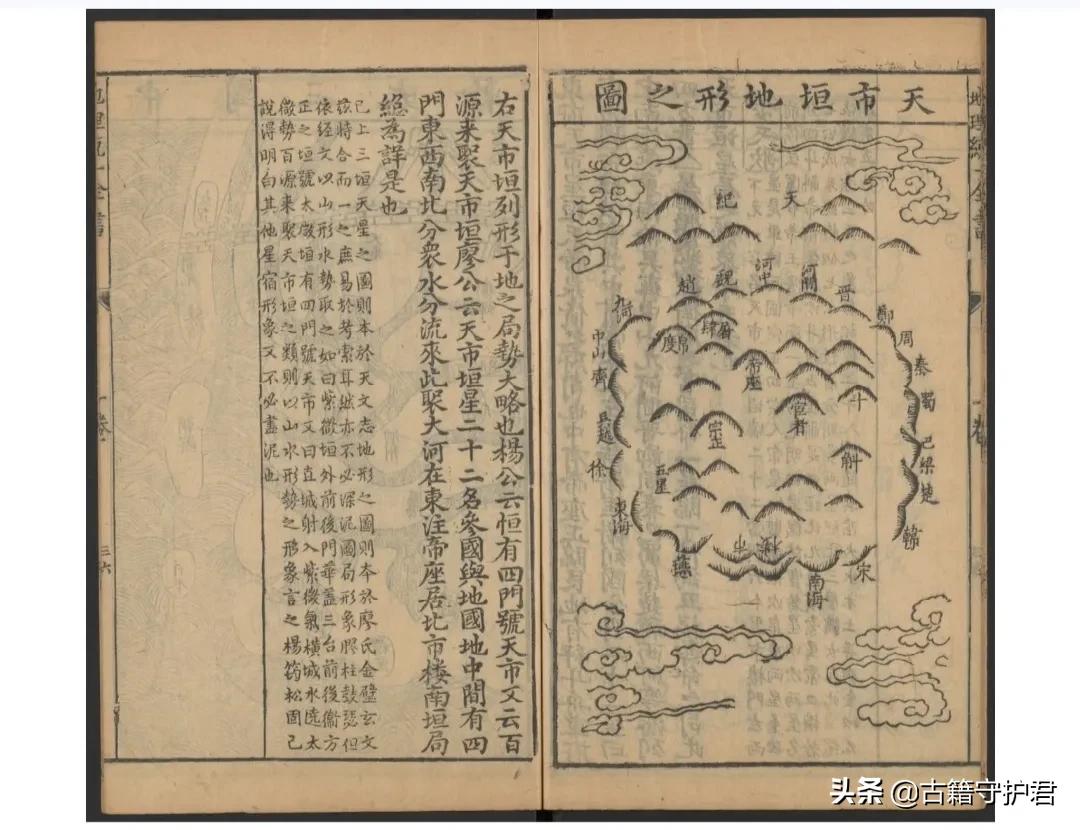 天市垣地形之圖
天紀
河中
河間
魏
晋
趙
鄭
九河
周
屠肆
帛度
中山
秦
帝座
齊
蜀
斗
宦者
吳越
宗正
巴
斛
梁
徐
楚
五星
東海
韓
燕
宋
南海
右天市垣列形于地之局勢大略也楊公云恒有四門號天市又云百
源来聚天市垣廖公云天市垣星二十二名參國與地國地中間有四
門東西南北分衆水分流來此聚大河在東注帝座居北市楼南垣局
總為詳是也
已上三垣天星之圖則本於天文志地形之圖則夲於廖氏金璧玄文
玆特合而一之庶易於考索耳然亦不必深泥圖局形象膠柱鼓瑟但
依經文以山形水勢取之如曰紫微垣外前後門華盖三台前後衞方
正之垣號太微垣有四門號天市又曰直城射入紫微氣横城水遶太
微勢百源来聚天市垣之類則以山水形勢之形象言之楊筠松固已
說得明白其他星宿形象又不必盡泥也
一卷
三六
头条 @古籍守护君